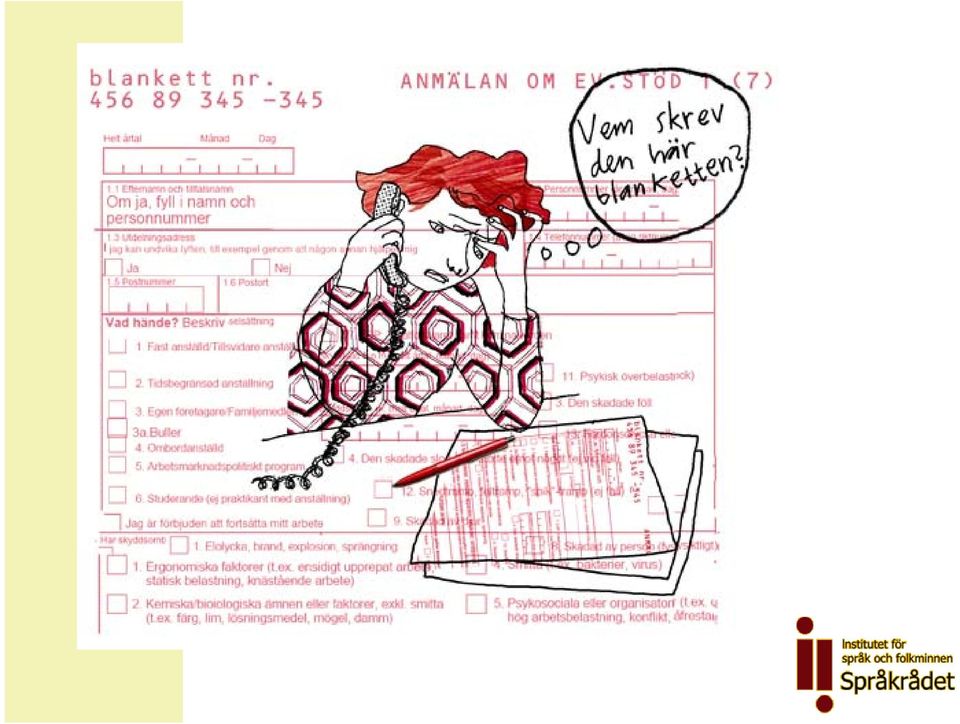 blankett nr.
456 89 345 -345
ANMÄLAN OM EV.STÖD 1 (7)
Vem skrev
den här
blanketten?
Helt årtal Månad Dag
1.1 Efternamn och tilltalsnamn
Om ja, fyll i namn och
personnummer
Personnummer
1.3 Utdelningsadress
jag kan undvika lyften, till exempel genom att någon annan
Ja Nej
1.5 Postnummer 1.6 Postort
Vad hände? Beskriv selsättning
1. Fast anställd/Tillsvidare anställ
2. Tidsbegränsad anställning
11. Psykisk överbelastn
3. Egen företagare/Familjemedle
3. Den skadade föll
3a.Buller
4. Ombordanställd
5. Arbetsmarknadspolitiskt program
4. Den skadade
6. Studerande (ej praktikant med anställning)
12.
Jag är förbjuden att fortsätta mitt arbete
9. Skadad av
Har skyddsomb
1. Elolycka, brand, explosion, sprängning
8. Skadad av person
1. Ergonomiska faktorer (t.ex. ensidigt upprepat arbete,
statisk belastning, knästående arbete)
4. Smitta (t.ex. bakterier, virus)
2. Kemiska/biologiska ämnen eller faktorer, exkl. smitta
(t.ex. färg, lim, lösningsmedel, mögel, damm)
5. Psykosociala eller organisatori (t.ex.
hög arbetsbelastning, konflikt,
blankett nr.
456 89 345 -345
Institutet för
språk och folkminnen
Språkrådet